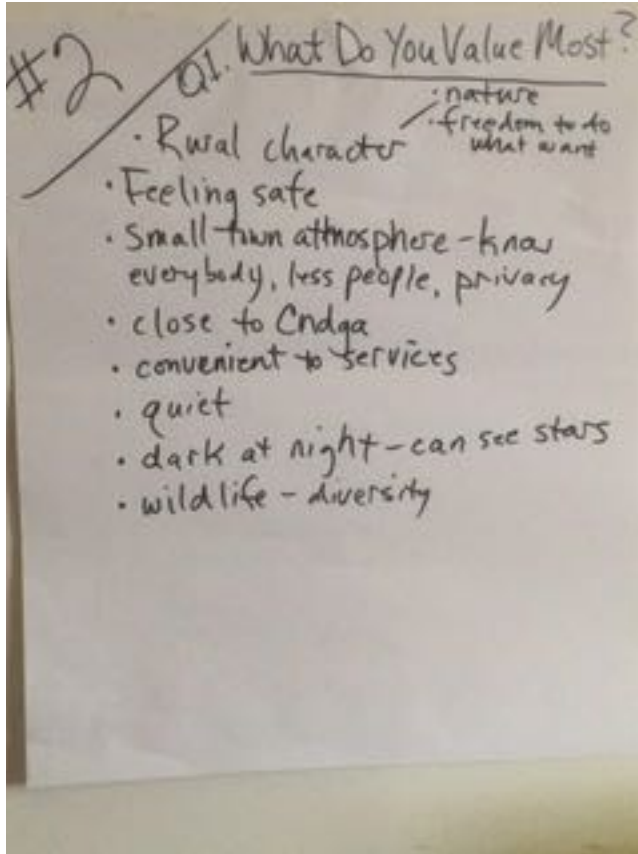 #2
Q1. What Do You Value Most?
• Rural character
• nature
• freedom to do
what want
• Feeling safe
• Small town attmosphere - know
everybody, less people, privacy
• close to Cndga
• convenient to services
• quiet
• dark at night - can see stars
• wildlife - diversity